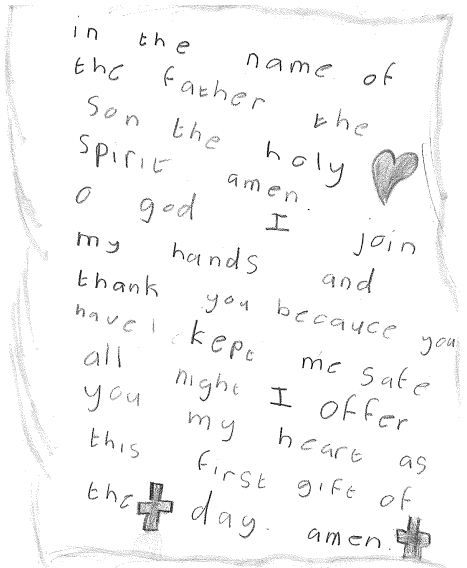 in the name of
the father the
Son the holy
Spirit amen.
O god I join
my hands and
thank you becauce you
have kept me safe
all night I offer
you my heart as
this first gift of
the day. amen.